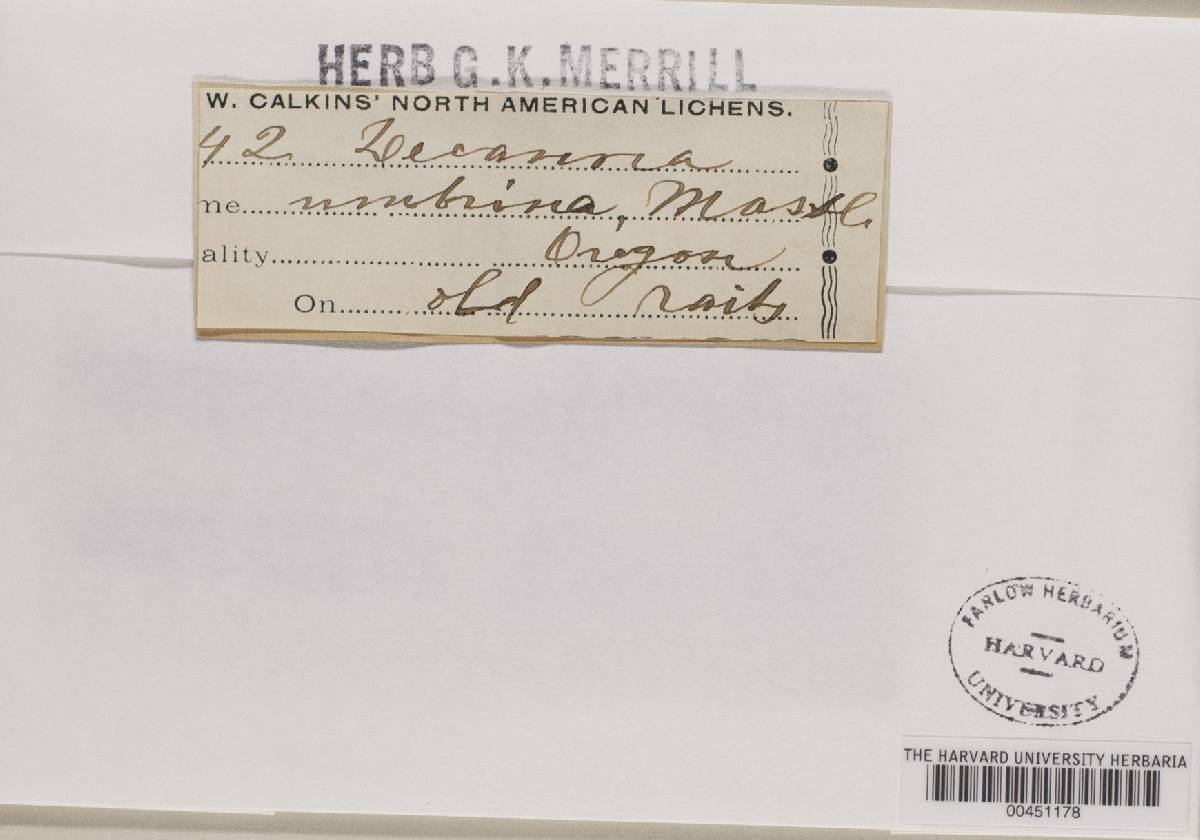 HERB G.K. MERRILL
W. CALKINS' NORTH AMERICAN LICHENS.
42 Lecanora
me umbrina, Massl.
ality Oregon
On old rails
FARLOW HERBARIUM
HARVARD
UNIVERSITY
THE HARVARD UNIVERSITY HERBARIA
00451178